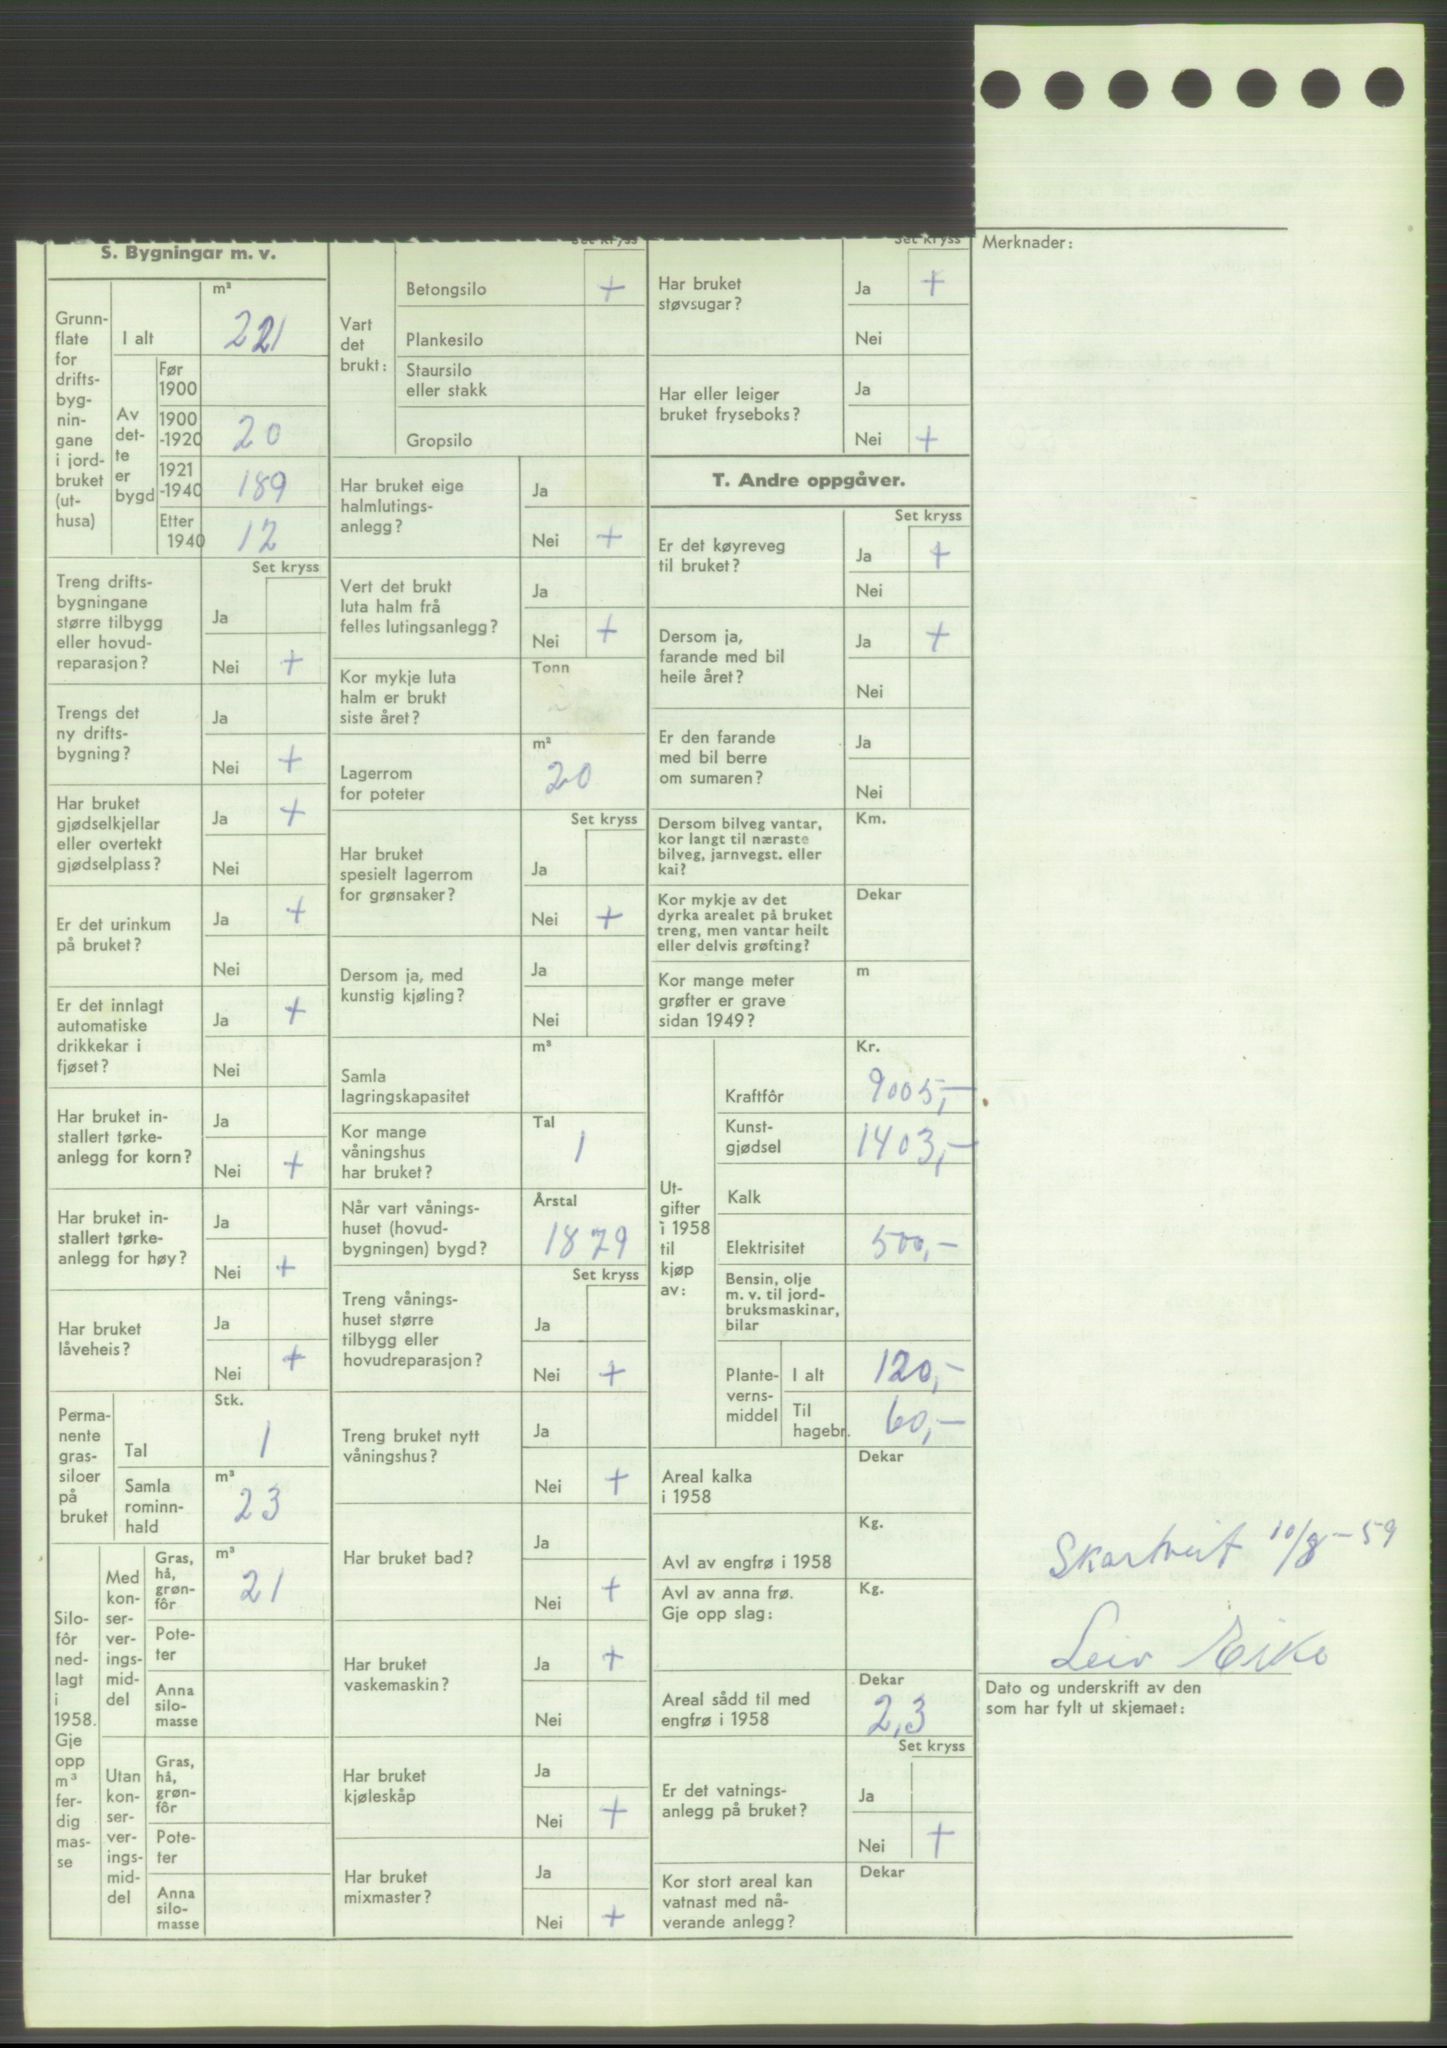 S. Bygningar m. v.
Grunn-
flate
for
drifts-
byg-
nin-
gane
i jord-
bruket
(ut-
husa)
I alt
m²
221
Av
det-
te
er
bygd
Før
1900
1900
-1920
20
1921
-1940
189
Etter
1940
12
Set kryss
Treng drifts-
bygningane
større tilbygg
eller hovud-
reparasjon?
Ja
Nei +
Trengs det
ny drifts-
bygning?
Ja
Nei +
Har bruket
gjødselkjellar
eller overtekt
gjødselplass?
Ja +
Nei
Er det urinkum
på bruket?
Ja +
Nei
Er det innlagt
automatiske
drikkekar i
fjøset?
Ja +
Nei
Har bruket in-
stallert tørke-
anlegg for korn?
Ja
Nei +
Har bruket in-
stallert tørke-
anlegg for høy?
Ja
Nei +
Har bruket
låveheis?
Ja
Nei +
Perma-
nente
gras-
siloer
på
bruket
Stk.
Tal 1
Samla
rominn-
hald
m³
23
Silo-
fôr
ned-
lagt
i
1958.
Gje
opp
m³
fer-
dig
mas-
se
Med
kon-
ser-
ver-
ings-
mid-
del
Gras,
hå,
grøn-
fôr
m³
21
Pote-
ter
Anna
silo-
masse
Utan
kon-
ser-
ver-
ings-
mid-
del
Gras,
hå,
grøn-
fôr
Pote-
ter
Anna
silo-
masse
Set kryss
Vart
det
brukt:
Betongsilo +
Plankesilo
Staursilo
eller stakk
Gropsilo
Har bruket eige
halmlutings-
anlegg?
Ja
Nei +
Vert det brukt
luta halm frå
felles lutingsanlegg?
Ja
Nei +
Kor mykje luta
halm er brukt
siste året?
Tonn
Lagerrom
for poteter
m²
20
Set kryss
Har bruket
spesielt lagerrom
for grønsaker?
Ja
Nei +
Dersom ja, med
kunstig kjøling?
Ja
Nei
Samla
lagringskapasitet
m³
Kor mange
våningshus
har bruket?
Tal
1
Når vart vånings-
huset (hovud-
bygningen) bygd?
Årstal
1879
Set kryss
Treng vånings-
huset større
tilbygg eller
hovudreparasjon?
Ja
Nei +
Treng bruket nytt
våningshus?
Ja
Nei +
Har bruket bad?
Ja
Nei +
Har bruket
vaskemaskin?
Ja +
Nei
Har bruket
kjøleskåp
Ja
Nei +
Har bruket
mixmaster?
Ja
Nei +
Set kryss
Har bruket
støvsugar?
Ja +
Nei
Har eller leiger
bruket fryseboks?
Ja
Nei +
T. Andre oppgåver.
Set kryss
Er det køyreveg
til bruket?
Ja +
Nei
Dersom ja,
farande med bil
heile året?
Ja +
Nei
Er den farande
med bil berre
om sumaren?
Ja
Nei
Dersom bilveg vantar,
kor langt til næraste
bilveg, jarnvegst. eller
kai?
Km.
Kor mykje av det
dyrka arealet på bruket
treng, men vantar heilt
eller delvis grøfting?
Dekar
Kor mange meter
grøfter er grave
sidan 1949?
m
Ut-
gifter
i 1958
til
kjøp
av:
Kr.
Kraftfôr 9005,—
Kunst-
gjødsel 1403,—
Kalk
Elektrisitet 500,—
Bensin, olje
m. v. til jord-
bruksmaskinar,
bilar
Plante-
verns-
middel
I alt 120,—
Til
hagebr. 60,—
Areal kalka
i 1958
Dekar
Avl av engfrø i 1958
Kg.
Avl av anna frø.
Gje opp slag:
Kg.
Areal sådd til med
engfrø i 1958
Dekar
2,3
Set kryss
Er det vatnings-
anlegg på bruket?
Ja
Nei +
Kor stort areal kan
vatnast med nå-
verande anlegg?
Dekar
Merknader:
Skartveit 10/8-59
Leiv Eike
Dato og underskrift av den
som har fylt ut skjemaet: